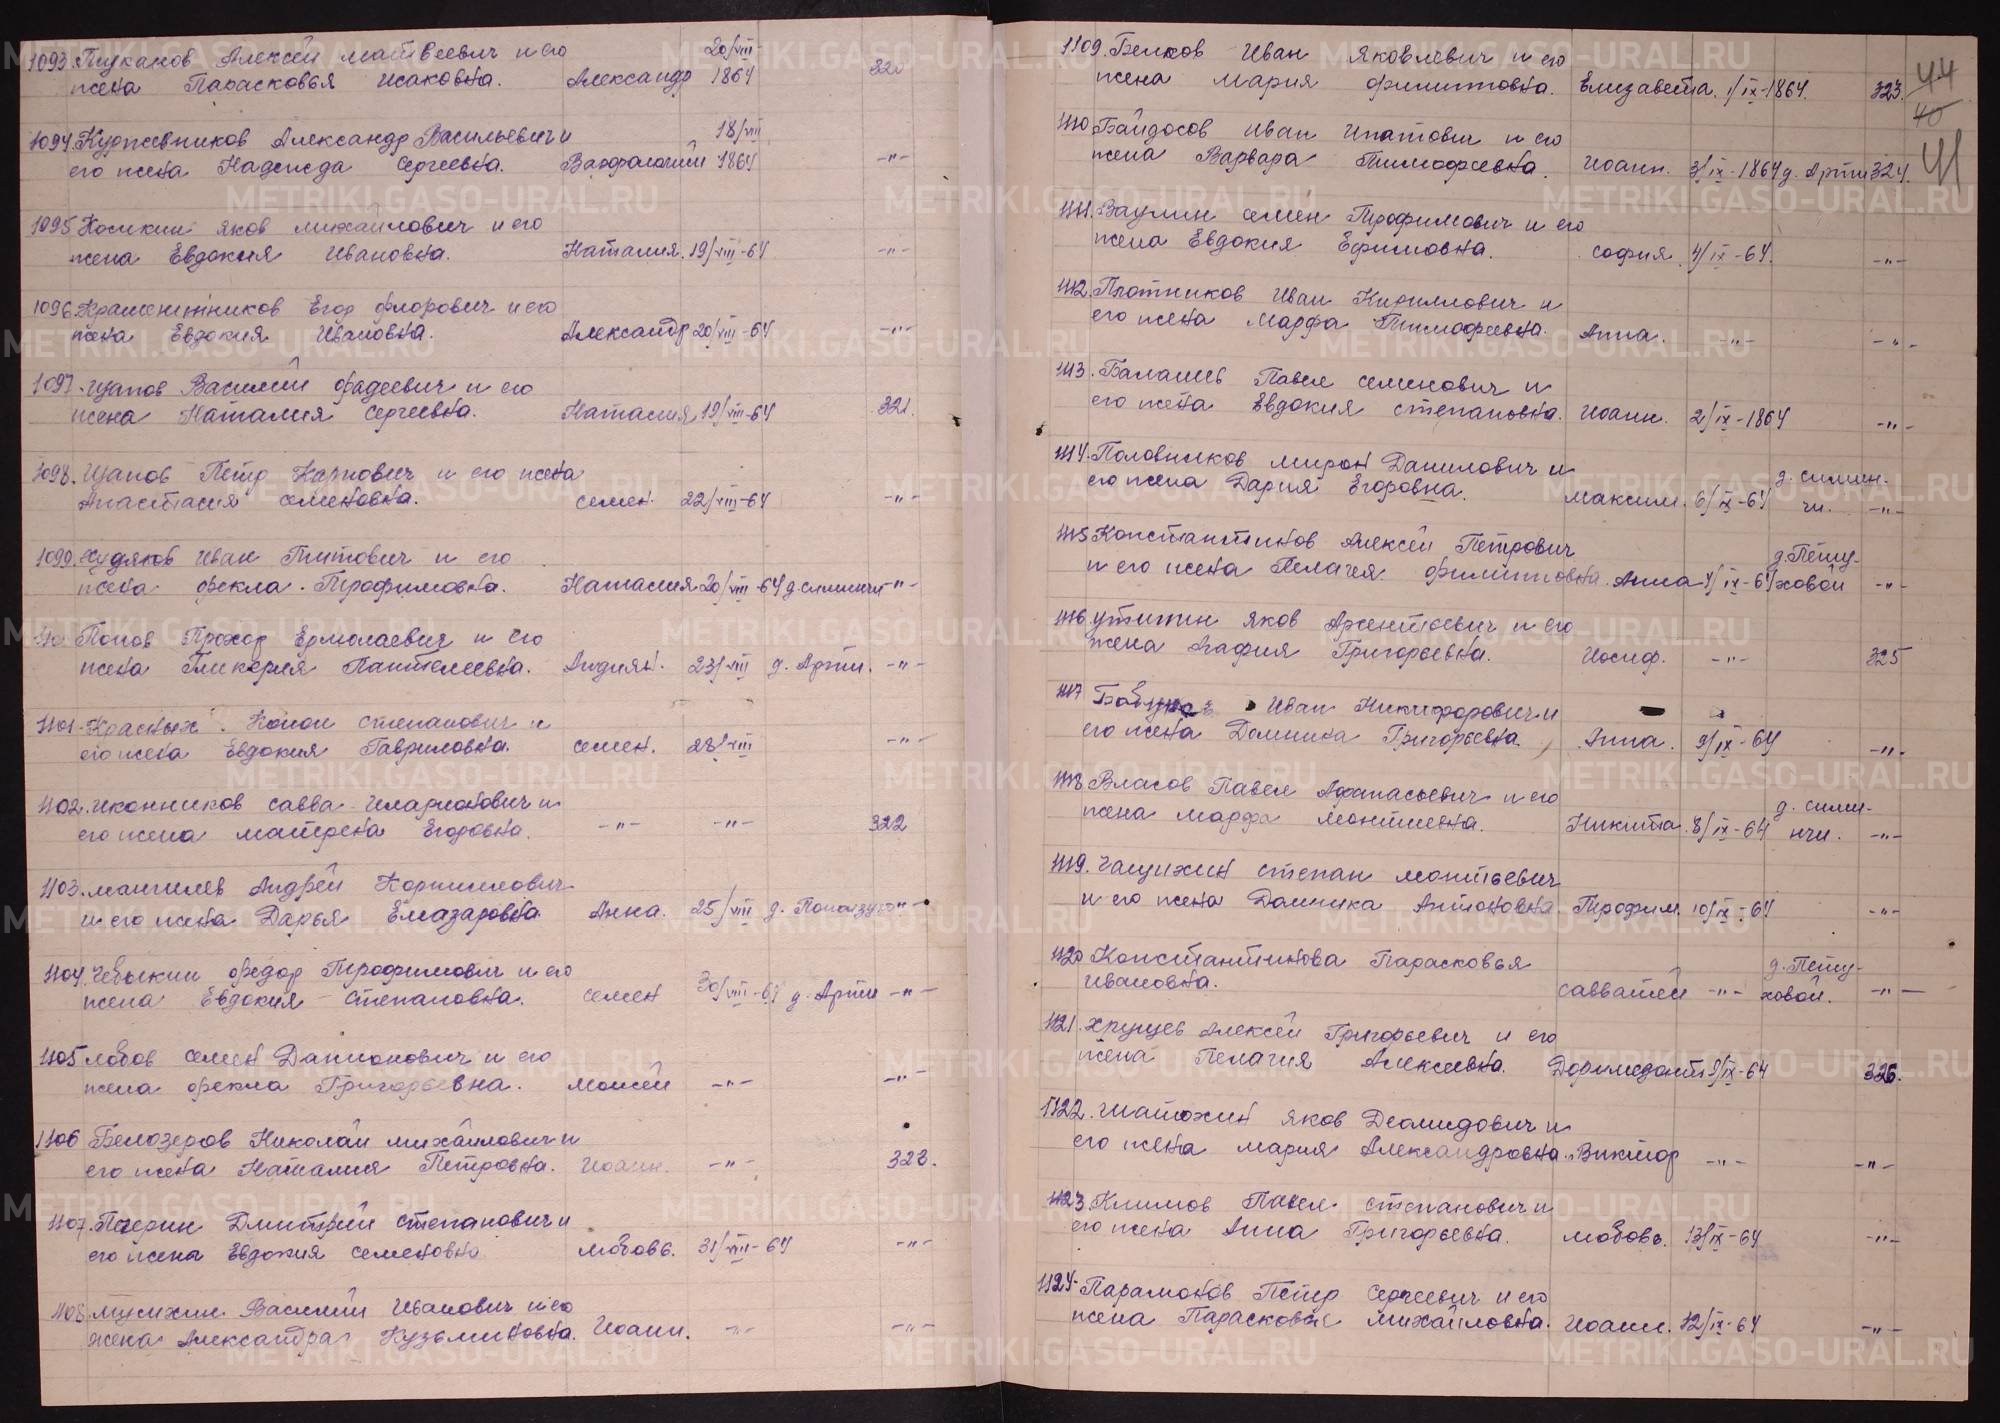 1093. Пуканов Алексей Матвеевич и его
жена Парасковья Исаковна. Александр 20/VIII-1864 320
1094. Куртевников Александр Васильевич и
его жена Надежда Сергеевна. 18/VIII 1864 -"-
1095 Носикин Яков Михайлович и его
жена Евдокия Ивановна. Наталия. 19/VIII-64 -"-
1096. Крашенинников Егор Флорович и его
жена Евдокия Ивановна. Александр 20/VIII-64 -"-
1097. Щапов Василий Фадеевич и его
жена Наталия Сергеевна. Наталия 19/VIII-64 321.
1098. Щапов Петр Карпович и его жена
Анастасия Семеновна. Семен. 22/VIII-64 -"-
1099. Худяков Иван Титович и его
жена Фекла Трофимовна. Наталия 20/VIII-64 д. Симинчи -"-
Попов Прохор Ермолаевич и его
жена Гликерия Пантелеевна. Андриян. 23/VIII д. Арти. -"-
1101. Красных. Конон Степанович и
его жена Евдокия Гавриловна. Семен. 28/VIII -"-
1102. Иконников Савва Иларионович и
его жена Матрена Егоровна. -"- -"- 322
1103. Мангилев Андрей Корнилович
и его жена Дарья Елизаровна. Анна. 25/VIII д. -"-
1104. Чебыкин Федор Трофимович и его
жена Евдокия Степановна. Семен 30/VIII-64 д. Арти -"-
1105 Лобов Семен Дамионович и его
жена Фекла Григорьевна. Моисей -"- -"-
1106 Белозеров Николай Михайлович и
его жена Наталия Петровна. Иоанн. -"- 323.
1107. Пгерин Дмитрий Степанович и
его жена Евдокия Семеновна Любовь. 31/VIII-64 -"-
1108. Мусихин Василий Иванович и его
жена Александра Кузьминовна. Иоанн. -"- -"-
1109. Белков Иван Яковлевич и его
жена Мария Филипповна. Елизавета. 1/IX-1864. 323.
44
40
41
1110. Байдосов Иван Ипатович и его
жена Варвара Тимофеевна. Иоанн. 3/IX-1864 д. Арти 324.
1111. Ваулин Семен Трофимович и его
жена Евдокия Ефимовна. София. 4/IX-64. -"-
1112. Плотников Иван Кириллович и
его жена Марфа Тимофеевна. Анна. -"- -"-
1113. Балашев Павел Семенович и
его жена Евдокия Степановна. Иоанн. 2/IX-1864 -"-
1114. Половников Мирон Данилович и
его жена Дария Егоровна. Максим. 6/IX-64 д. Симин-
чи. -"-
1115 Константинов Алексей Петрович
и его жена Пелагея Филипповна. Анна 4/IX-64 д. Пету-
ховой -"-
1116. Утитин Яков Арсентьевич и его
жена Агафия Григорьевна. Иосиф. -"- 325
1117 Иван Никифорович и
его жена Домника Григорьевна. Анна. 9/IX-64 -"-
1118. Власов Павел Афанасьевич и его
жена Марфа Монтиевна. Никита. 8/IX-64 д. Сими-
нчи. -"-
1119. Чащихин Степан Монтьевич
и его жена Домника Антоновна. Трофим. 10/IX-64 -"-
1120 Константинова Парасковья
Ивановна. Савватей -"- д. Пету-
ховой. -"-
1121. Хрущев Алексей Григорьевич и его
жена Пелагия Алексеевна. Доримедонт 9/IX-64 326.
1122. Шатохин Яков Деомидович и
его жена Мария Александровна. Виктор -"- -"-
1123. Климов Павел Степанович и
его жена Анна Григорьевна. Любовь. 13/IX-64 -"-
1124. Парамонов Петр Сергеевич и его
жена Парасковья Михайловна. Иоанн. 12/IX-64 -"-
METRIKI.GASO-URAL.RU